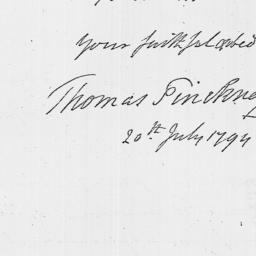 your faithful obed
Thomas Pinckney
20th July 1794